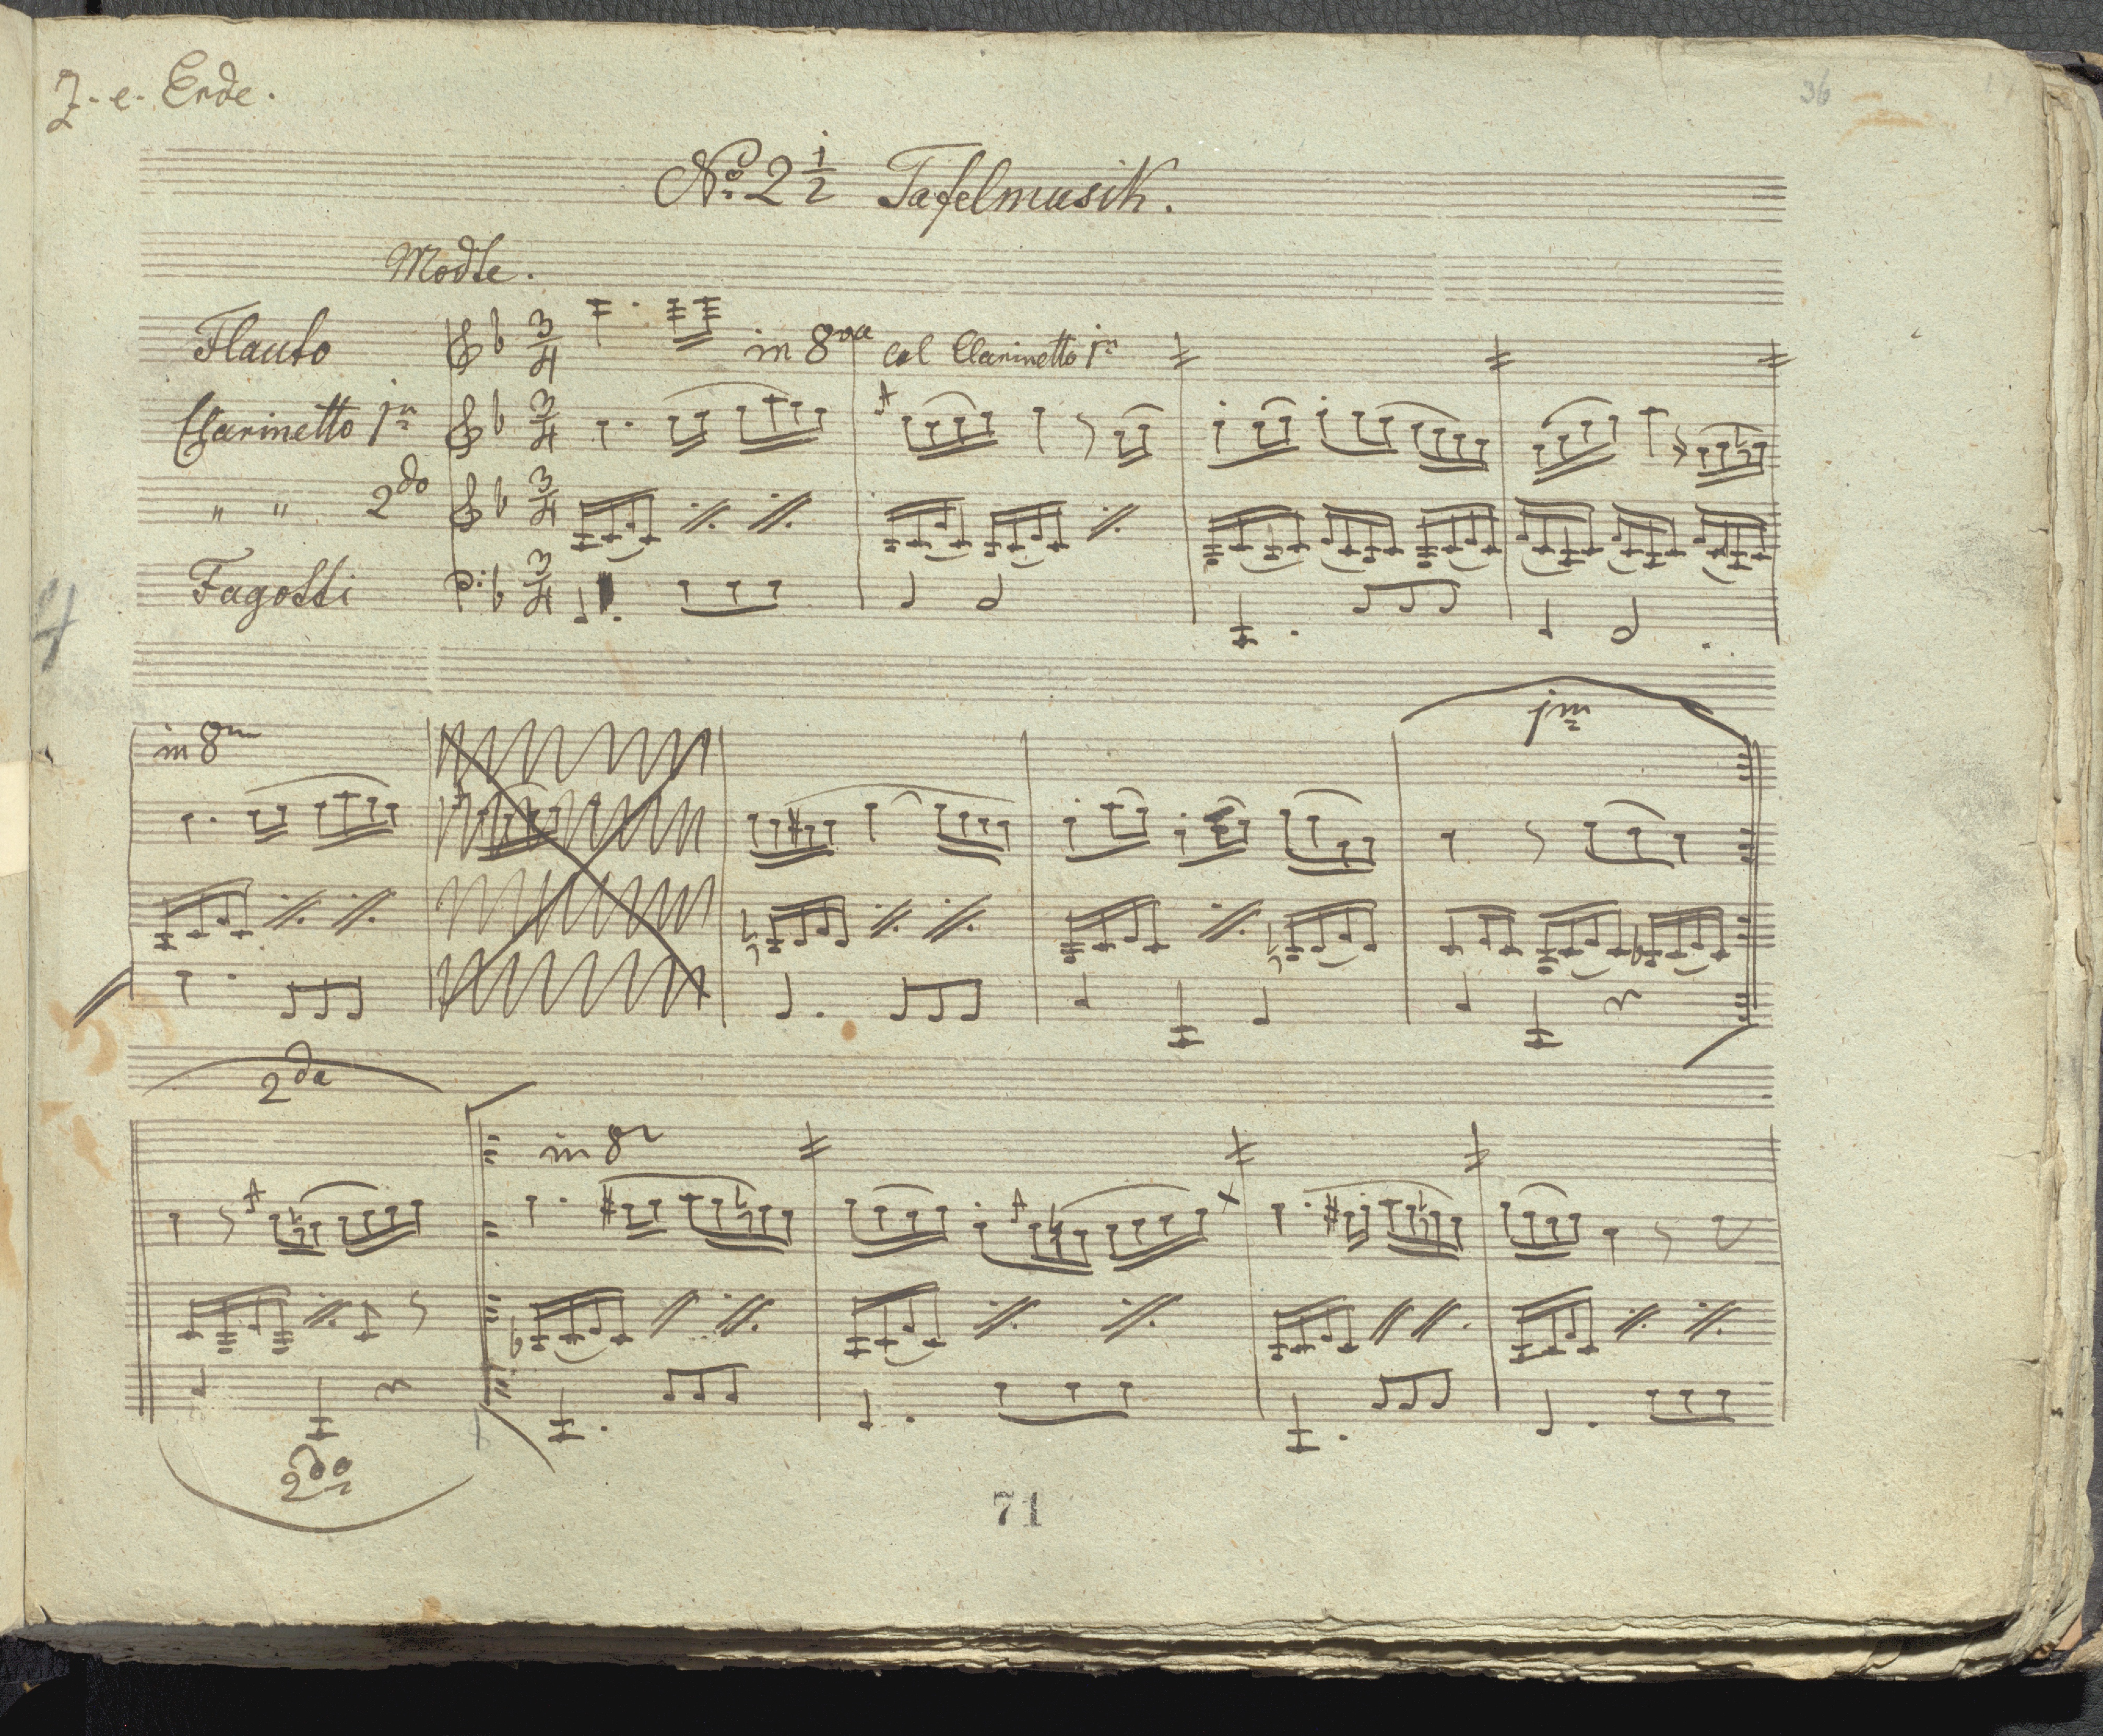 J. e. Erde.
36
No. 2 1/2 Tafelmusik.
Modte.
Flauto 3/4 in 8va col Clarinetto 1m
Clarinetto 1m 3/4
" " 2do 3/4
Fagotti 3/4
in 8va
1m
2da
in 8va
2do
71